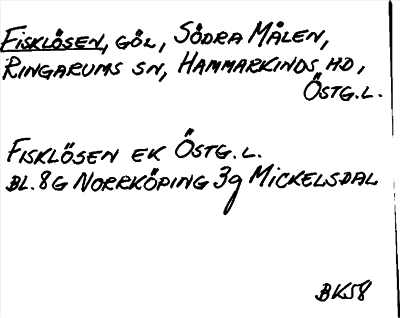 FISKLÖSEN, GÖL, SÖDRA MÅLEN,
RINGARUMS SN, HAMMARKINDS HD,
ÖSTG.L.
FISKLÖSEN EK ÖSTG.L.
BL. 8G NORRKÖPING 3g MICKELSDAL
BK58